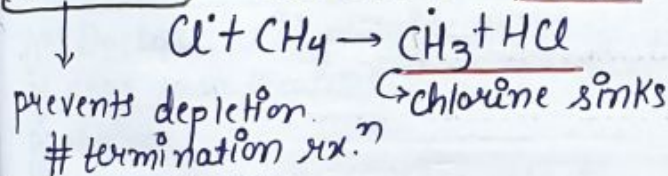 Cl• + CH4 → ĊH3 + HCl
prevents depletion.
↳ chlorine sinks
# termination rx.ⁿ